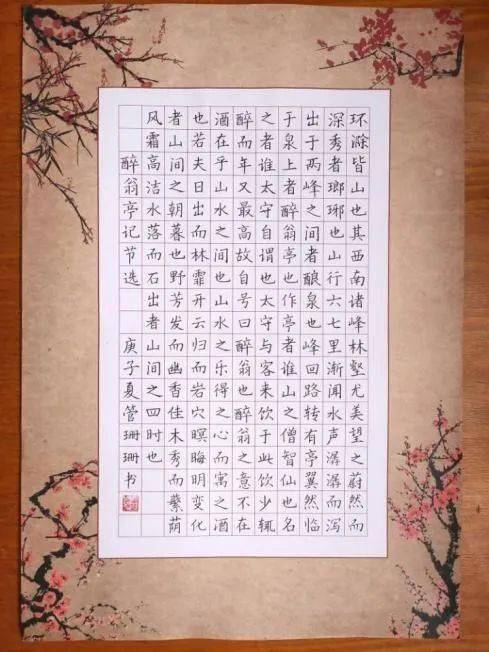 环滁皆山也其西南诸峰林壑尤美望之蔚然而
深秀者瑯琊也山行六七里渐闻水声潺潺而泻
出于两峰之间者酿泉也峰回路转有亭翼然临
于泉上者醉翁亭也作亭者谁山之僧智仙也名
之者谁太守自谓也太守与客来饮于此饮少辄
醉而年又最高故自号曰醉翁也醉翁之意不在
酒在乎山水之间也山水之乐得之心而寓之酒
也若夫日出而林霏开云归而岩穴暝晦明变化
者山间之朝暮也野芳发而幽香佳木秀而繁荫
风霜高洁水落而石出者山间之四时也
醉翁亭记节选 庚子夏管珊珊书